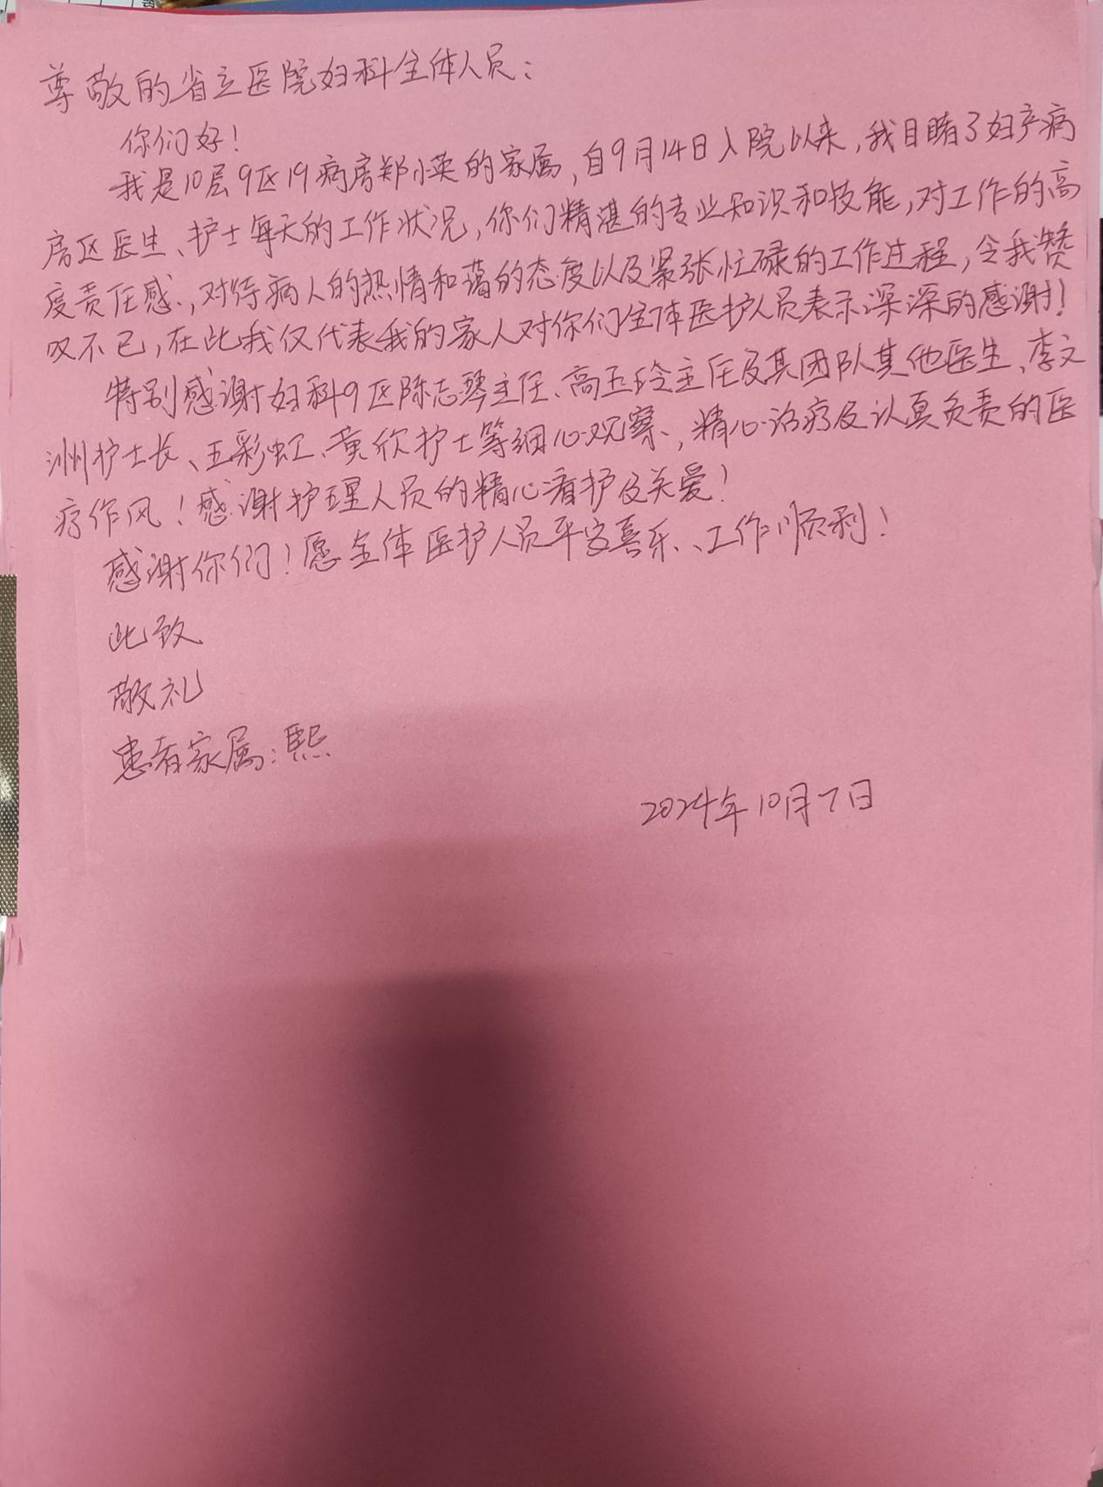 尊敬的省立医院妇科全体人员：
你们好！
我是10层9区19病房郑小英的家属，自9月14日入院以来，我目睹了妇产病
房区医生、护士每天的工作状况，你们精湛的专业知识和技能，对工作的高
度责任感，对待病人的热情和蔼的态度以及紧张忙碌的工作过程，令我赞
叹不已，在此我仅代表我的家人对你们全体医护人员表示深深的感谢！
特别感谢妇科9区陈志琴主任、高玉玲主任及其团队其他医生、李文
洲护士长、王彩虹、黄欣护士等细心观察、，精心治疗及认真负责的医
疗作风！感谢护理人员的精心看护及关爱！
感谢你们！愿全体医护人员平安喜乐、工作顺利！
此致
敬礼
患者家属：熙
2024年10月7日